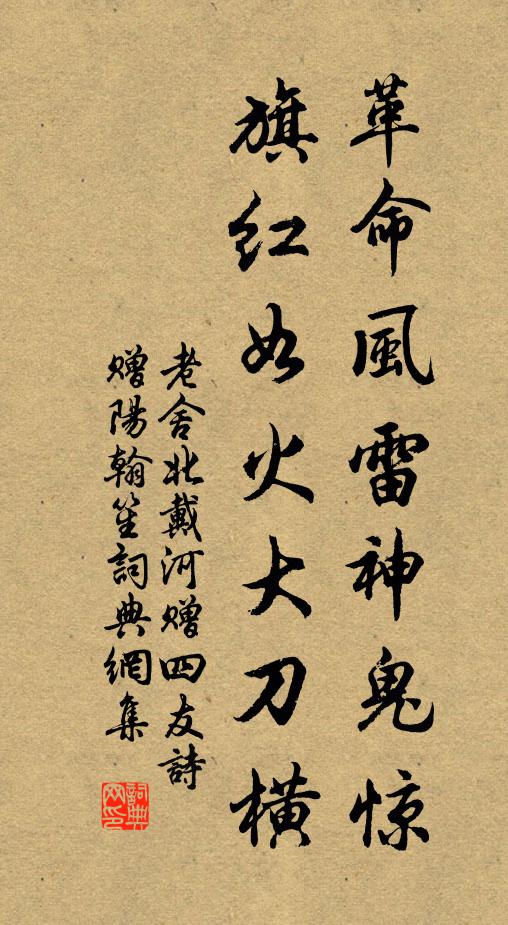 革命風雷神鬼惊
旗红如火大刀横
老舍北戴河赠四友詩
赠陽翰笙詞典網集
詞典网印